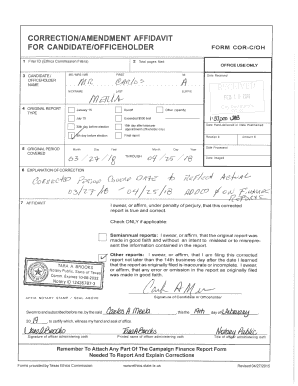 CORRECTION/AMENDMENT AFFIDAVIT
FOR CANDIDATE/OFFICEHOLDER
FORM COR-C/OH
1 Filer ID (Ethics Commission Filers)
2 Total pages filed:
OFFICE USE ONLY
3 CANDIDATE/
OFFICEHOLDER
NAME
MS / MRS / MR
FIRST
MI
MR
CARLOS
A
NICKNAME
LAST
SUFFIX
MEJIA
Date Received
4 ORIGINAL REPORT
TYPE
January 15
Runoff
Other (specify)
July 15
Exceeded $500 limit
30th day before election
8th day before election
Final report
Receipt #
Amount $
5 ORIGINAL PERIOD
COVERED
Month Day Year
THROUGH
Month Day Year
03 / 27 / 18
04 / 25 / 18
Date Processed
Date Imaged
6 EXPLANATION OF CORRECTION
CORRECTED PERIOD COVER DATE TO REFLECT ACTUAL
03/27/18 04/25/18 ADDED ON FINANCE
REPORTS
7 AFFIDAVIT
I swear, or affirm, under penalty of perjury, that this corrected
report is true and correct.
Check ONLY if applicable:
Semiannual reports: I swear, or affirm, that the original report was
made in good faith and without an intent to mislead or to misrepre-
sent the information contained in the report.
Other reports: I swear, or affirm, that I am filing this corrected
report not later than the 14th business day after the date I learned
that the report as originally filed is inaccurate or incomplete. I swear,
or affirm, that any error or omission in the report as originally filed
was made in good faith.
TARA A. BROOKS
Notary Public, State of Texas
Signature of Candidate or Officeholder
AFFIX NOTARY STAMP / SEAL ABOVE
Sworn to and subscribed before me, by the said Carlos A Mejia this the day of
20 , to certify which, witness my hand and seal of office.
Tara A Brooks
Notary Public
Signature of officer administering oath
Printed name of officer administering oath
Title of officer administering oath
Remember To Attach Any Part Of The Campaign Finance Report Form
Needed To Report And Explain Corrections
Forms provided by Texas Ethics Commission
www.ethics.state.tx.us